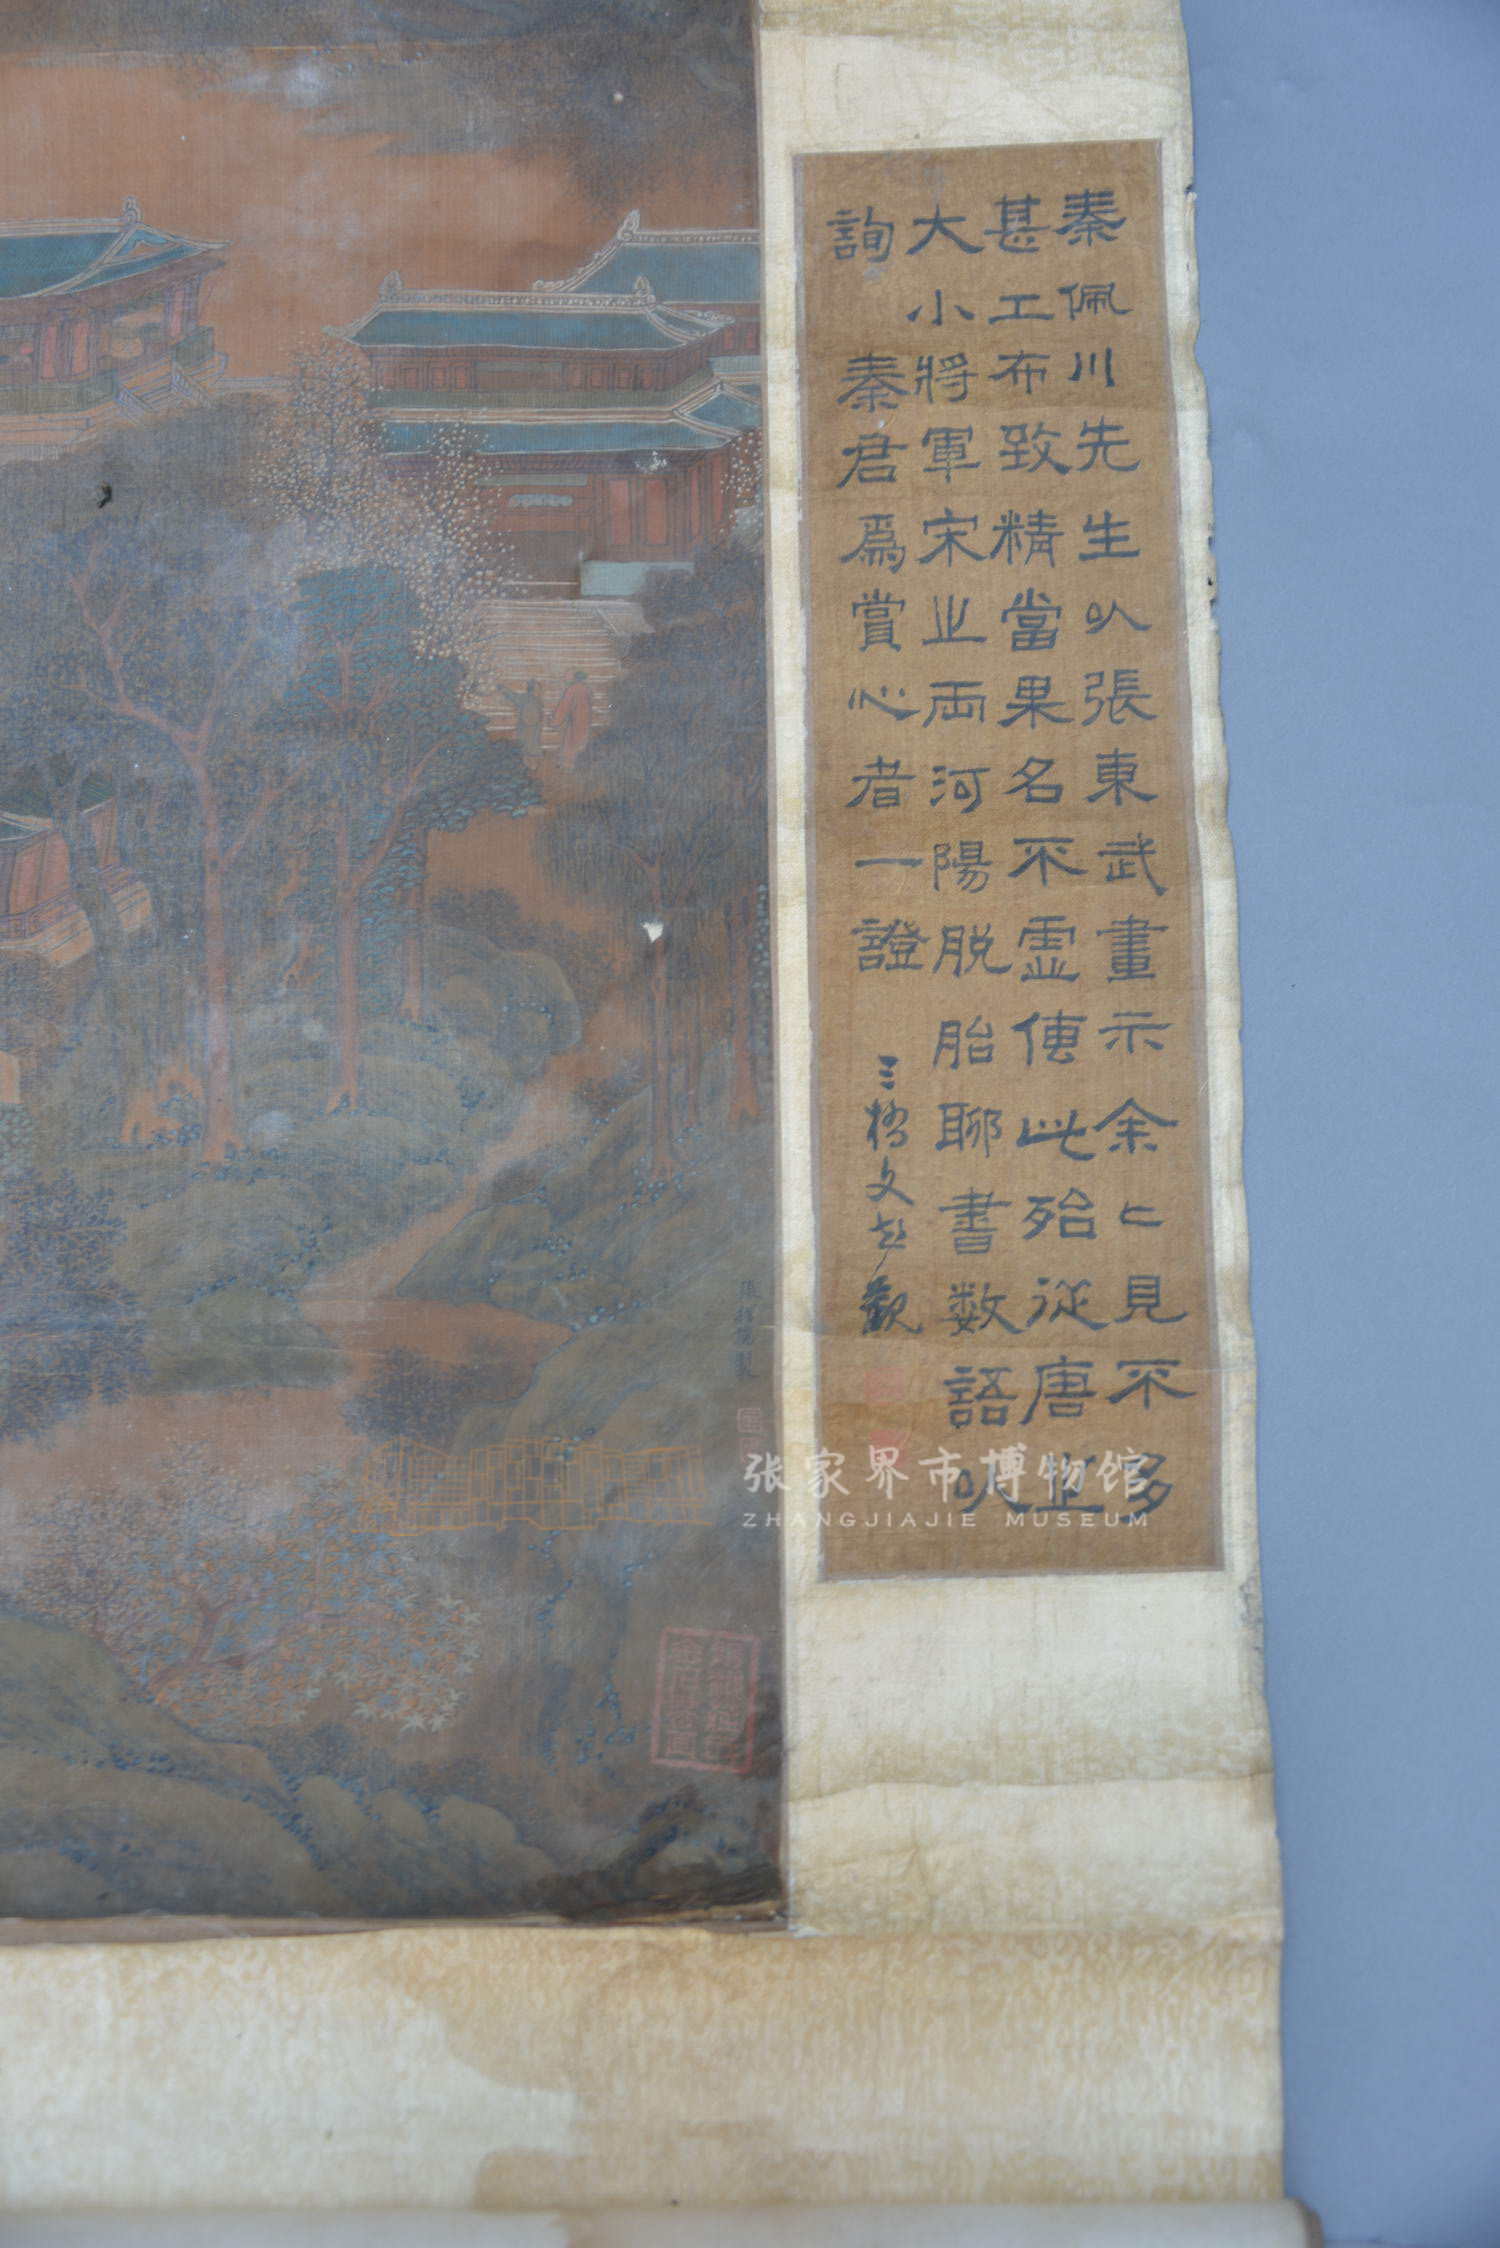 秦佩川先生以張東武畫示余余見不多
甚工布致精當果名不虛傳此殆從唐之
大小將軍宋之兩河陽脱胎聊書數語以
詢 秦君為賞心者一證
三橋文彭觀
張擇端製
张家界市博物馆
ZHANGJIAJIE MUSEUM